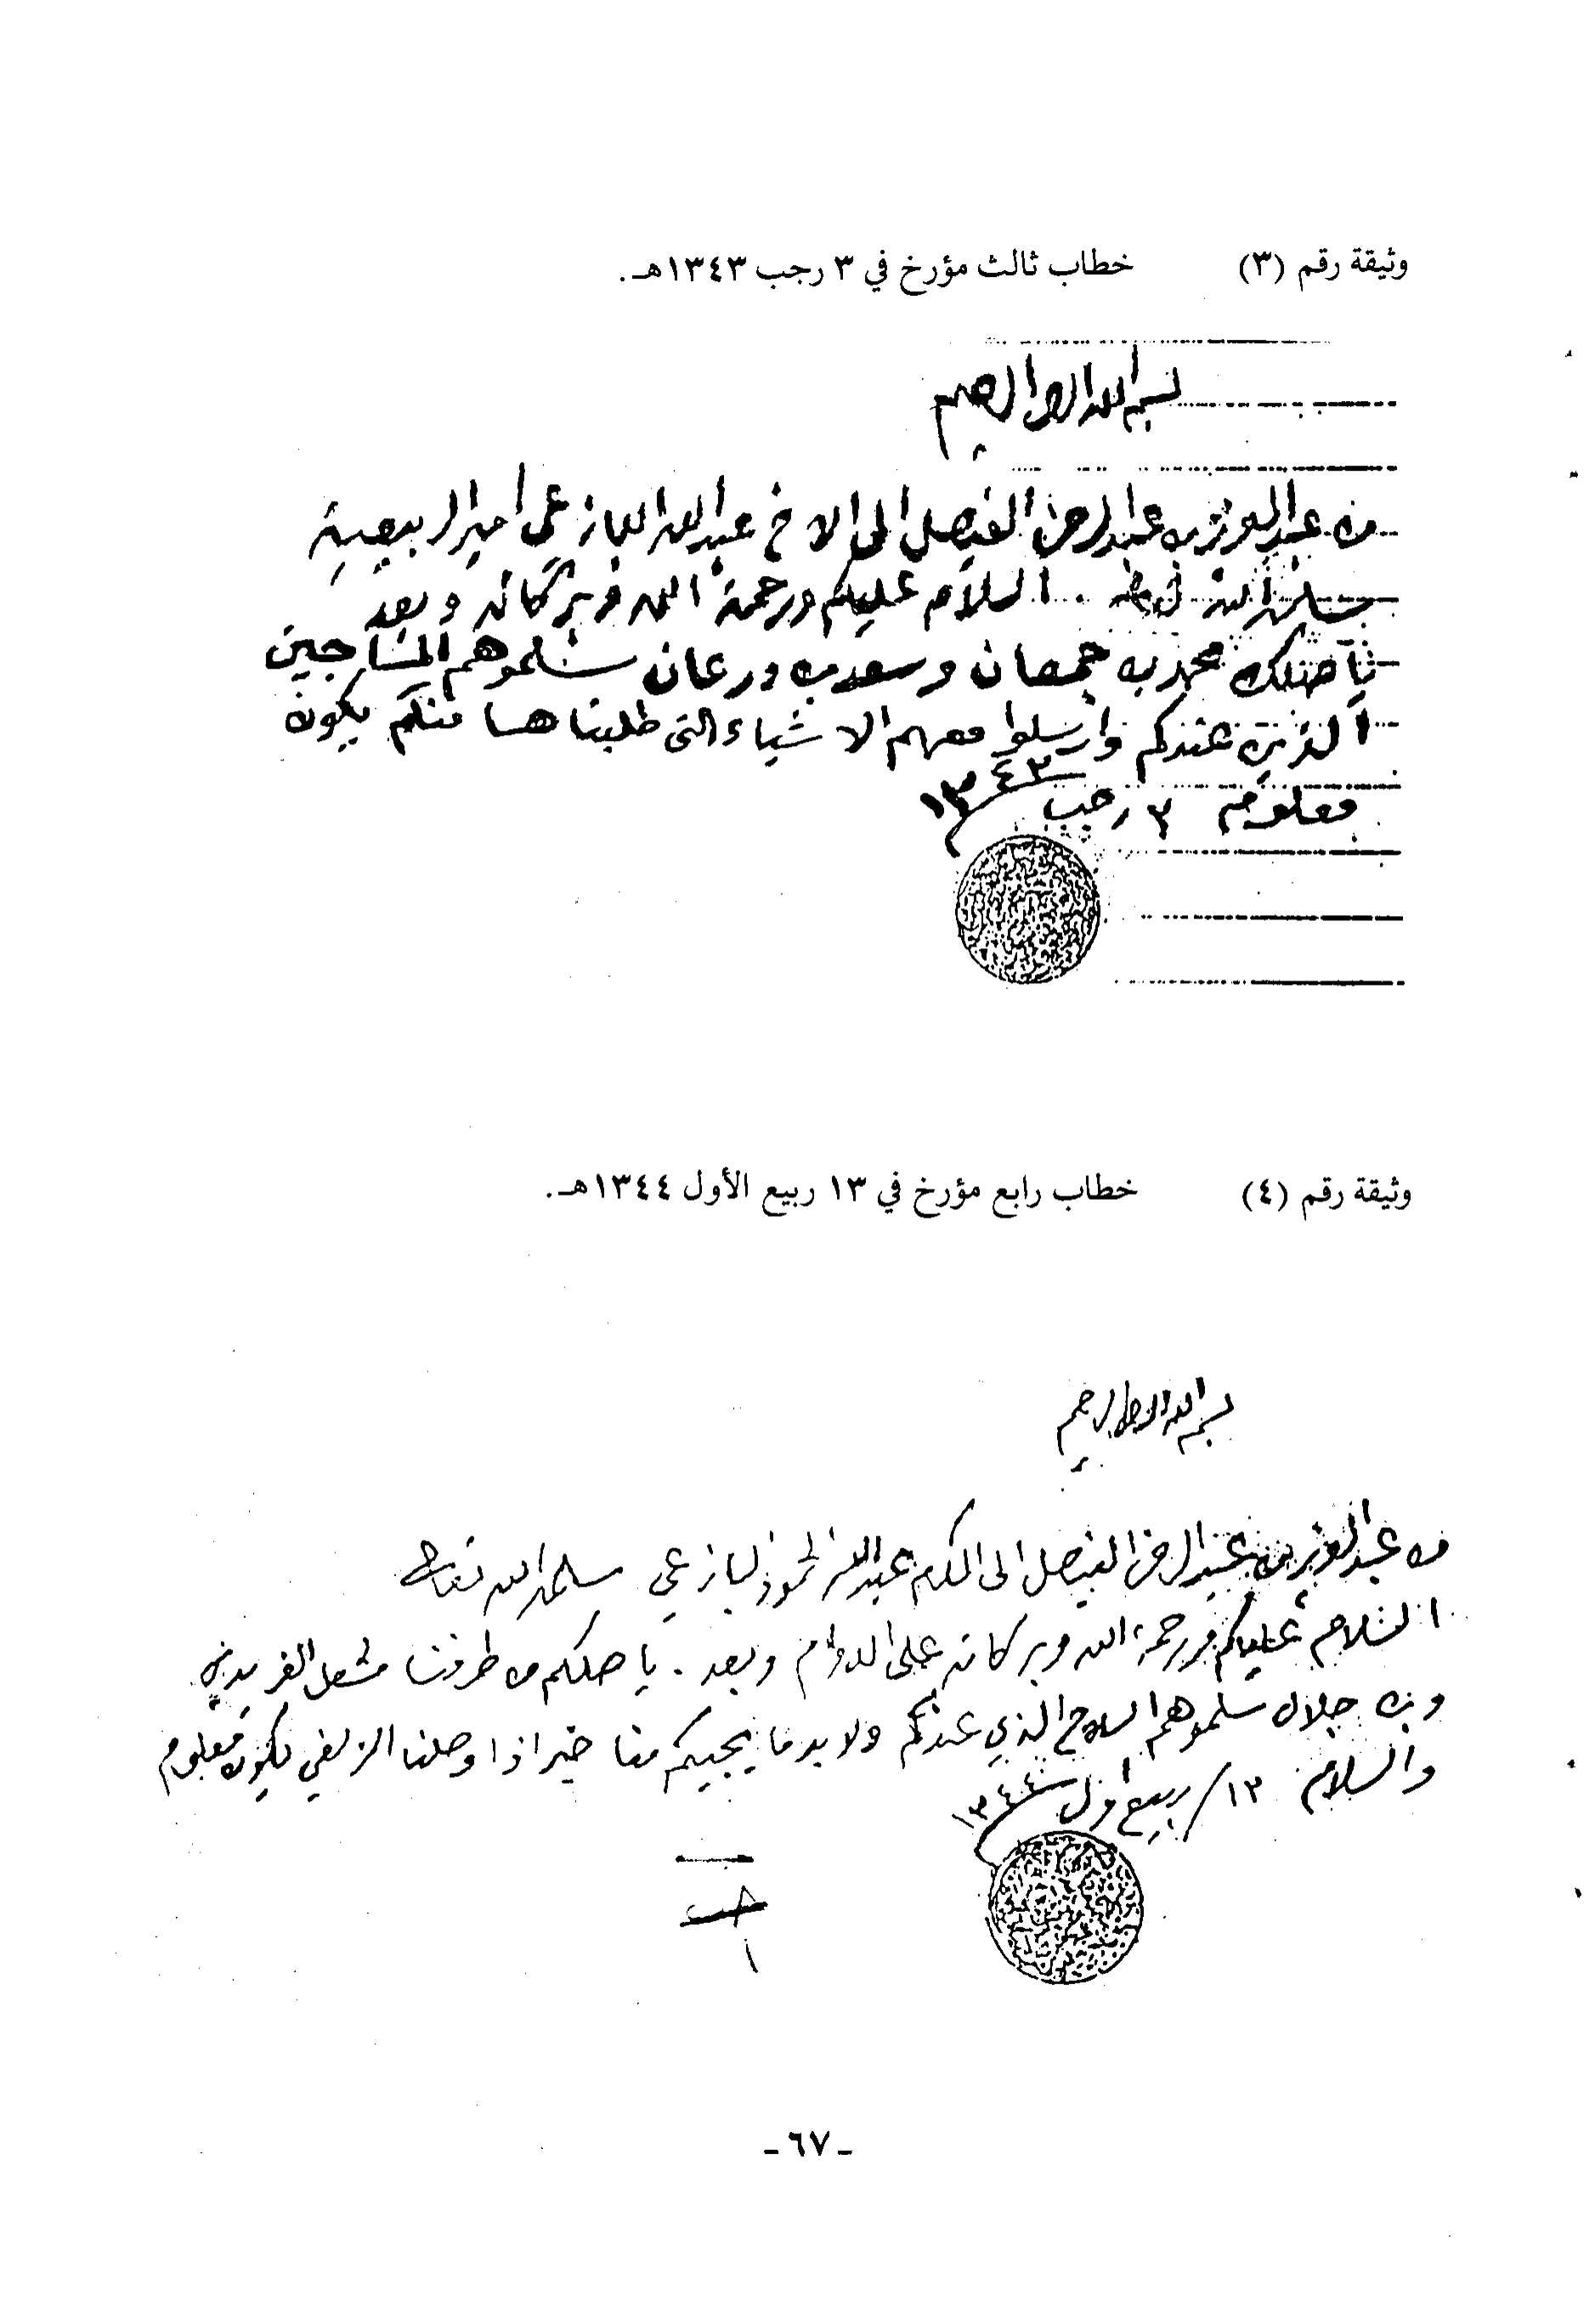 وثيقة رقم (٣) خطاب ثالث مؤرخ في ٣ رجب ١٣٤٣هـ.
بسم الله الرحمن الرحيم
من عبدالعزيز بن عبدالرحمن الفيصل الى الاخ عبدالله البازعي امير الربيعية
سلمه الله السلام عليكم ورحمة الله وبركاته وبعد
ياصلك محمد بن جمعان وسعد بن درعان سلموهم المساجين
الذين عندكم وارسلوا معهم الاشياء التى طلبناها منكم يكون
معلوم ٣ رجب ١٣٤٣
وثيقة رقم (٤) خطاب رابع مؤرخ في ١٣ ربيع الأول ١٣٤٤هـ.
بسم الله الرحمن الرحيم
من عبدالعزيز بن عبدالرحمن الفيصل الى المكرم عبدالله الحمود البازعي سلمه الله تعالى
السلام عليكم ورحمة الله وبركاته على الدوام وبعد. ياصلكم من طرفنا مشعل الفريدي
وبن جلال سلموهم السلاح الذي عندكم ولا بد ما يجيكم منا خبر اذا وصلنا الزلفي يكون معلوم
والسلام ١٣/ ربيع اول ١٣٤٤
- ٦٧ -